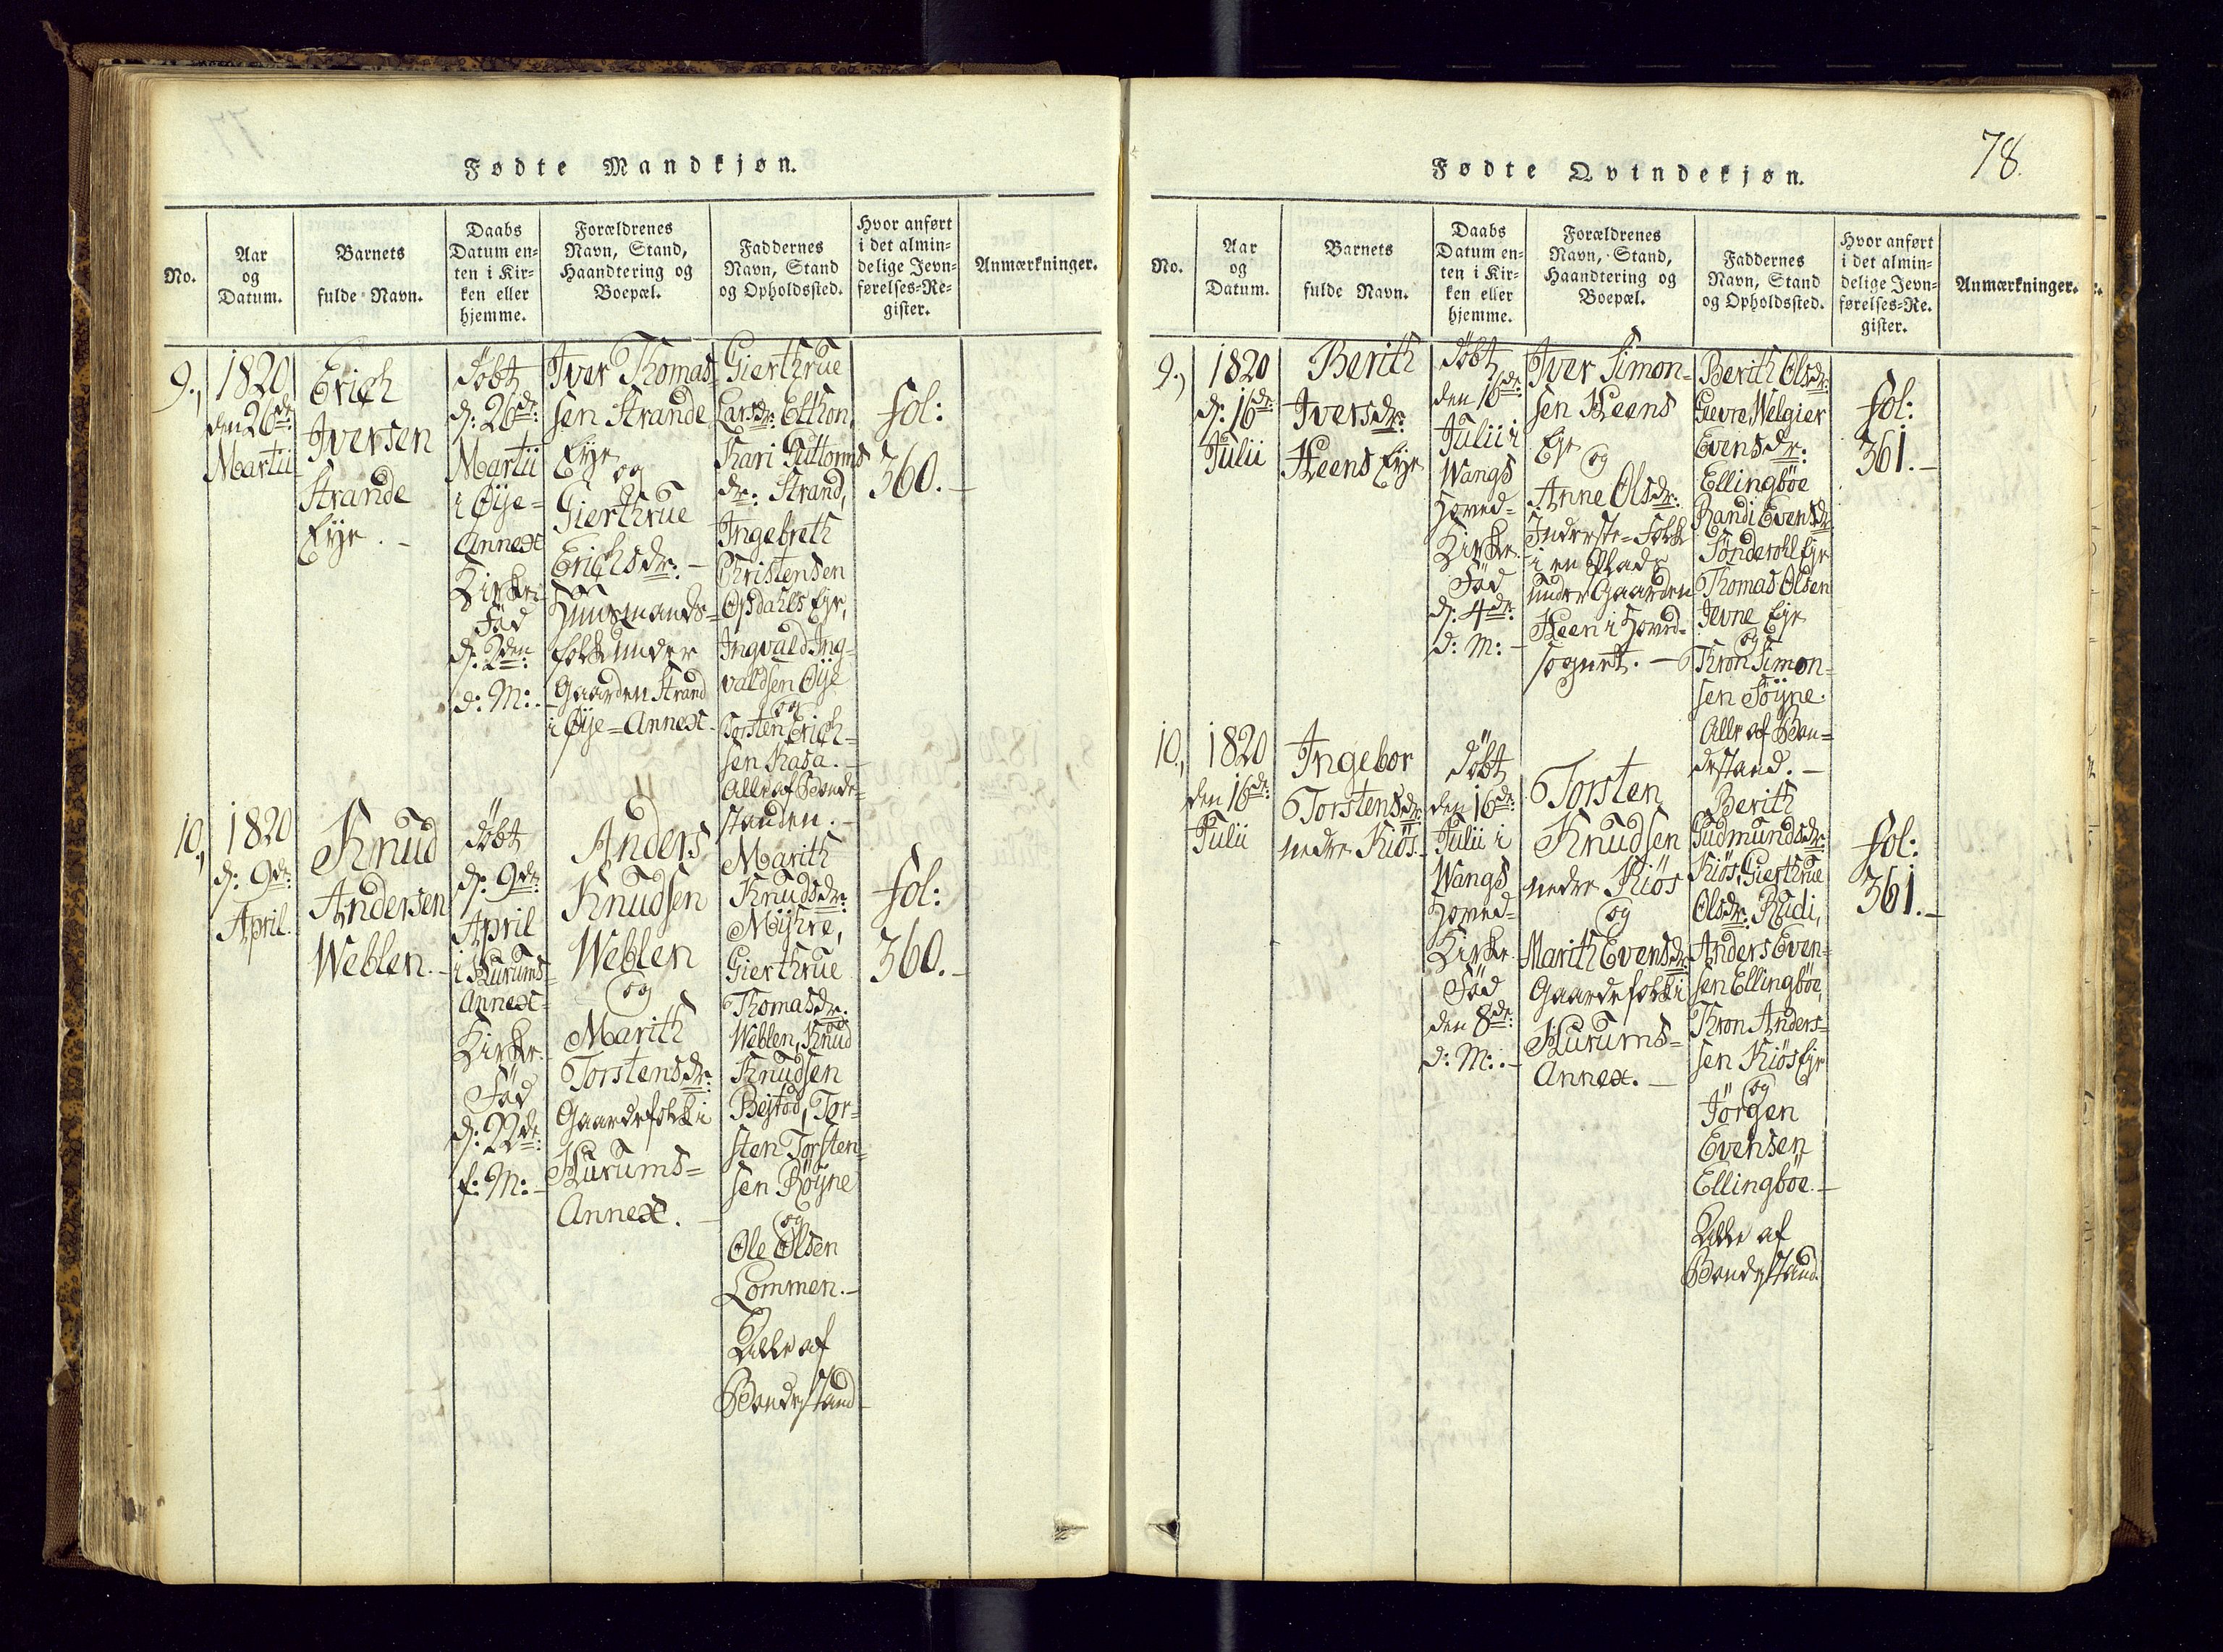 Fødte Mandkjøn.
No.
Aar
og
Datum.
Barnets
fulde Navn.
Daabs
Datum en-
ten i Kir-
ken eller
hjemme.
Forældrenes
Navn, Stand,
Haandtering og
Boepæl.
Faddernes
Navn, Stand
og Opholdssted.
Hvor anført
i det almin-
delige Jevn-
førelses-Re-
gister.
Anmærkninger.
9.,
1820
den 26de:
Martii
Erich
Iversen
Strande
Eye. -
döbt
d: 26de:
Martii
i Øÿe=
Annex
Kirke.
Fød
d: 2den:
d: M: -
Iver Thomas-
sen Strande
Eye
og
Gierthrue
Erichsdr: -
Huusmands-
folk under
Gaarden Strand
i Øÿe=Annex.
Gierthrue
Larsdr: Elthon,
Kari Guttorms
dr: Strand,
Ingebreth
Christensen
Opdahls Eje,
Ingvald Ing-
valdsen Øÿe
og
Torsten Erich-
sen Kasa. -
Alle af Bonde-
standen. -
fol:
360. -
10.,
1820
d: 9de:
April.
Knud
Andersen
Weblen. -
döbt
d: 9de:
April
i Hurums-
Annex=
Kirke.
Fød
d: 22de:
f: M: -
Anders
Knudsen
Weblen
og
Marith
Torstensdr:
Gaardefolk i
Hurums=
Annex. -
Marith
Knudsdr:
Mÿhre,
Gierthrue
Thomasdr:
Weblen, Knud
Knudsen
Bejstöd, Tor-
sten Torsten-
sen Röÿne
og
Ole Olsen
Lommen. -
Alle af
Bondestand -
fol:
360. -
78.
Fødte Qvindekjøn.
No.
Aar
og
Datum.
Barnets
fulde Navn.
Daabs
Datum en-
ten i Kir-
ken eller
hjemme.
Forældrenes
Navn, Stand,
Haandtering og
Boepæl.
Faddernes
Navn, Stand
og Opholdssted.
Hvor anført
i det almin-
delige Jevn-
førelses-Re-
gister.
Anmærkninger.
9.,
1820
d: 16de:
Julii
Berith
Iversdr:
Heens Eye
döbt
den 16de:
Julii i
Wangs
Hoved=
Kirke.
Fød
d: 4de:
d: M: -
Iver Simon-
sen Heens
Eje
og
Anne Olsdr:
Inderste=Folk
i en Plads
under Gaarden
Heen i Hoved-
sognet. -
Berith Olsdr:
Gievre Welgier
Evensdr:
Ellingböe
Randi Evensdr:
Sönderohl Eje
Thomas Olsen
Jevne Eje
og
Thron Simon-
sen Söÿne.
Alle af Bon-
destand. -
fol:
361. -
10.,
1820
den 16de:
Julii
Ingebor
Torstensdr:
nedre Kiös. -
döbt
den 16de:
Julii i
Wangs
Hoved=
Kirke.
Fød
den 8de:
d: M: -
Torsten
Knudsen
nedre Kiös
og
Marith Evensdr:
Gaardefolk i
Hurums=
Annex. -
Berith
Gudmundsdr:
Kiös, Gierthrue
Olsdr: Rudi,
Anders Even-
sen Ellingböe,
Thron Anders-
sen Kiös Eje
og
Jörgen
Evensen
Ellingböe. -
Alle af
Bondestand.
fol:
361. -